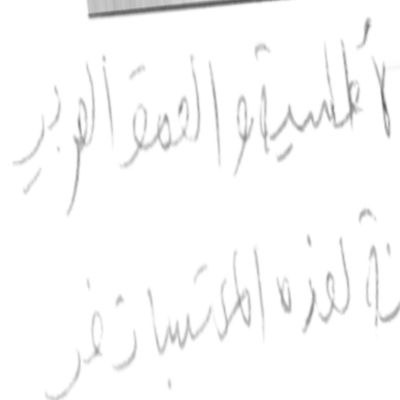 لأطلسية و العمق العربي
نة لهذه المكتسبات في